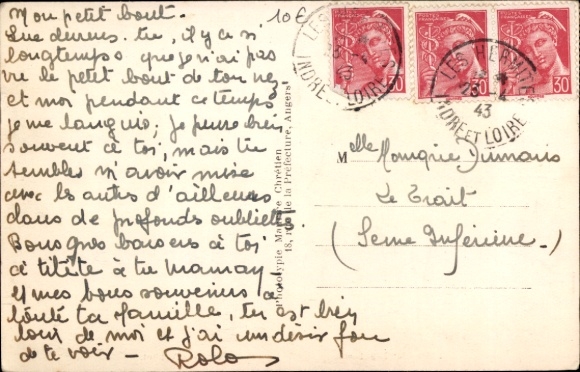 Mon petit bout.
Que deviens-tu, il y a si
longtemps que je n'ai pas
vu le petit bout de ton nez
et moi pendant ce temps
je me languis; je pense bien
souvent à toi, mais tu
sembles m'avoir mise
avec les autres d'ailleurs
dans de profonds oubliettes
Bons gros baisers à toi
à titite à ta maman
et mes bons souvenirs à
toute ta famille, tu est bien
loin de moi et j'ai un désir fou
de te voir - Rolo
10€
Phototypie Maurice Chrétien
18, rue de la Préfecture, Angers
30
30
30
INDRE ET LOIRE
23 -4
43
INDRE ET LOIRE
Melle Monique Dumais
Le Trait
(Seine Inférieure.)